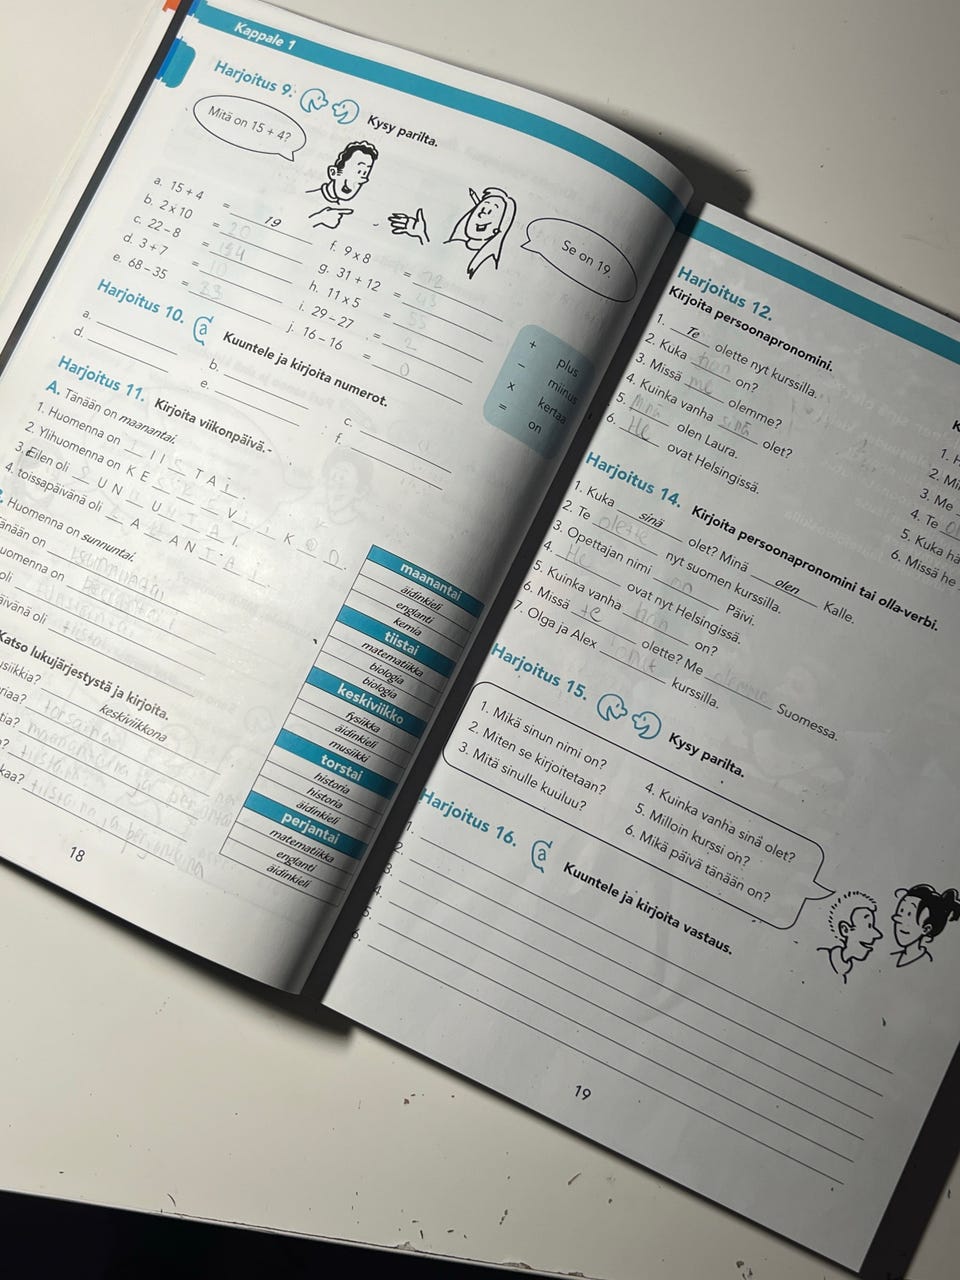 Kappale 1
Harjoitus 9. Kysy parilta.
Mitä on 15 + 4?
Se on 19.
a. 15 + 4 = 19
b. 2 x 10 = 20
c. 22 – 8 =
d. 3 + 7 = 10
e. 68 – 35 = 33
f. 9 x 8 = 72
g. 31 + 12 = 43
h. 11 x 5 = 55
i. 29 – 27 = 2
j. 16 – 16 = 0
+ plus
– miinus
x kertaa
= on
Harjoitus 10. Kuuntele ja kirjoita numerot.
a.
b.
c.
d.
e.
f.
Harjoitus 11. Kirjoita viikonpäivä.-
A. Tänään on maanantai.
1. Huomenna on T I I S T A I.
2. Ylihuomenna on K E S K I V I I K K O N.
3. Eilen oli S U N N U N T A I.
4. toissapäivänä oli L A U A N T A I.
Huomenna on sunnuntai.
on
uomenna on
oli
äivänä oli tiistai
Katso lukujärjestystä ja kirjoita.
usiikkia? keskiviikkona
riaa? torstaina
tia? maanantaina ja
a? tiistaina
kaa? tiistaina ja perjantaina
maanantai
äidinkieli
englanti
kemia
tiistai
matematiikka
biologia
biologia
keskiviikko
fysiikka
äidinkieli
musiikki
torstai
historia
historia
äidinkieli
perjantai
matematiikka
englanti
äidinkieli
18
Harjoitus 12.
Kirjoita persoonapronomini.
1. Te olette nyt kurssilla.
2. Kuka hän on?
3. Missä me olemme?
4. Kuinka vanha sinä olet?
5. Minä olen Laura.
6. He ovat Helsingissä.
K
1. H
2. Mi
3. Me
4. Te
5. Kuka hä
6. Missä he
Harjoitus 14. Kirjoita persoonapronomini tai olla-verbi.
1. Kuka sinä olet? Minä olen Kalle.
2. Te olette nyt suomen kurssilla.
3. Opettajan nimi on Päivi.
4. He ovat nyt Helsingissä.
5. Kuinka vanha hän on?
6. Missä te olette? Me olemme Suomessa.
7. Olga ja Alex kurssilla.
Harjoitus 15. Kysy parilta.
1. Mikä sinun nimi on?
2. Miten se kirjoitetaan?
3. Mitä sinulle kuuluu?
4. Kuinka vanha sinä olet?
5. Milloin kurssi on?
6. Mikä päivä tänään on?
Harjoitus 16. Kuuntele ja kirjoita vastaus.
1.
2.
3.
4.
5.
6.
19